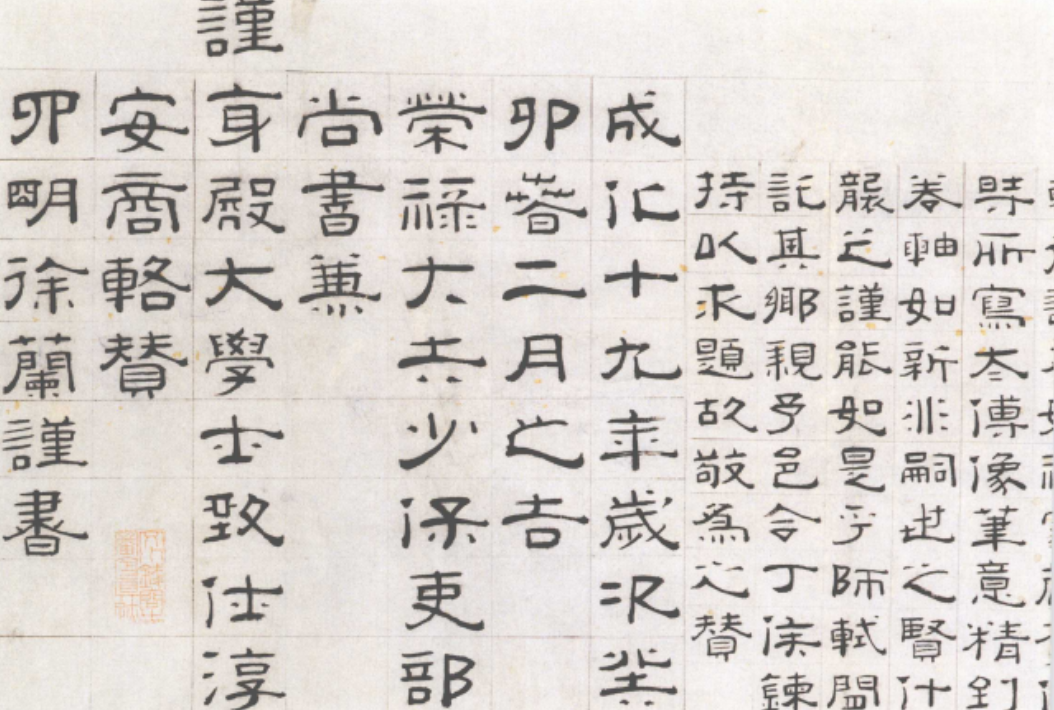 時所寫太傅像筆意精到
卷軸如新非嗣世之賢什
襲之謹能如是乎師軾
託其鄉親予邑令丁侯鍊
持以求題故敬為之贊
成化十九年歲次癸
卯春二月之吉
榮祿大夫少保吏部
尚書兼
謹身殿大學士致仕淳
安商輅贊
四明徐蘭謹書